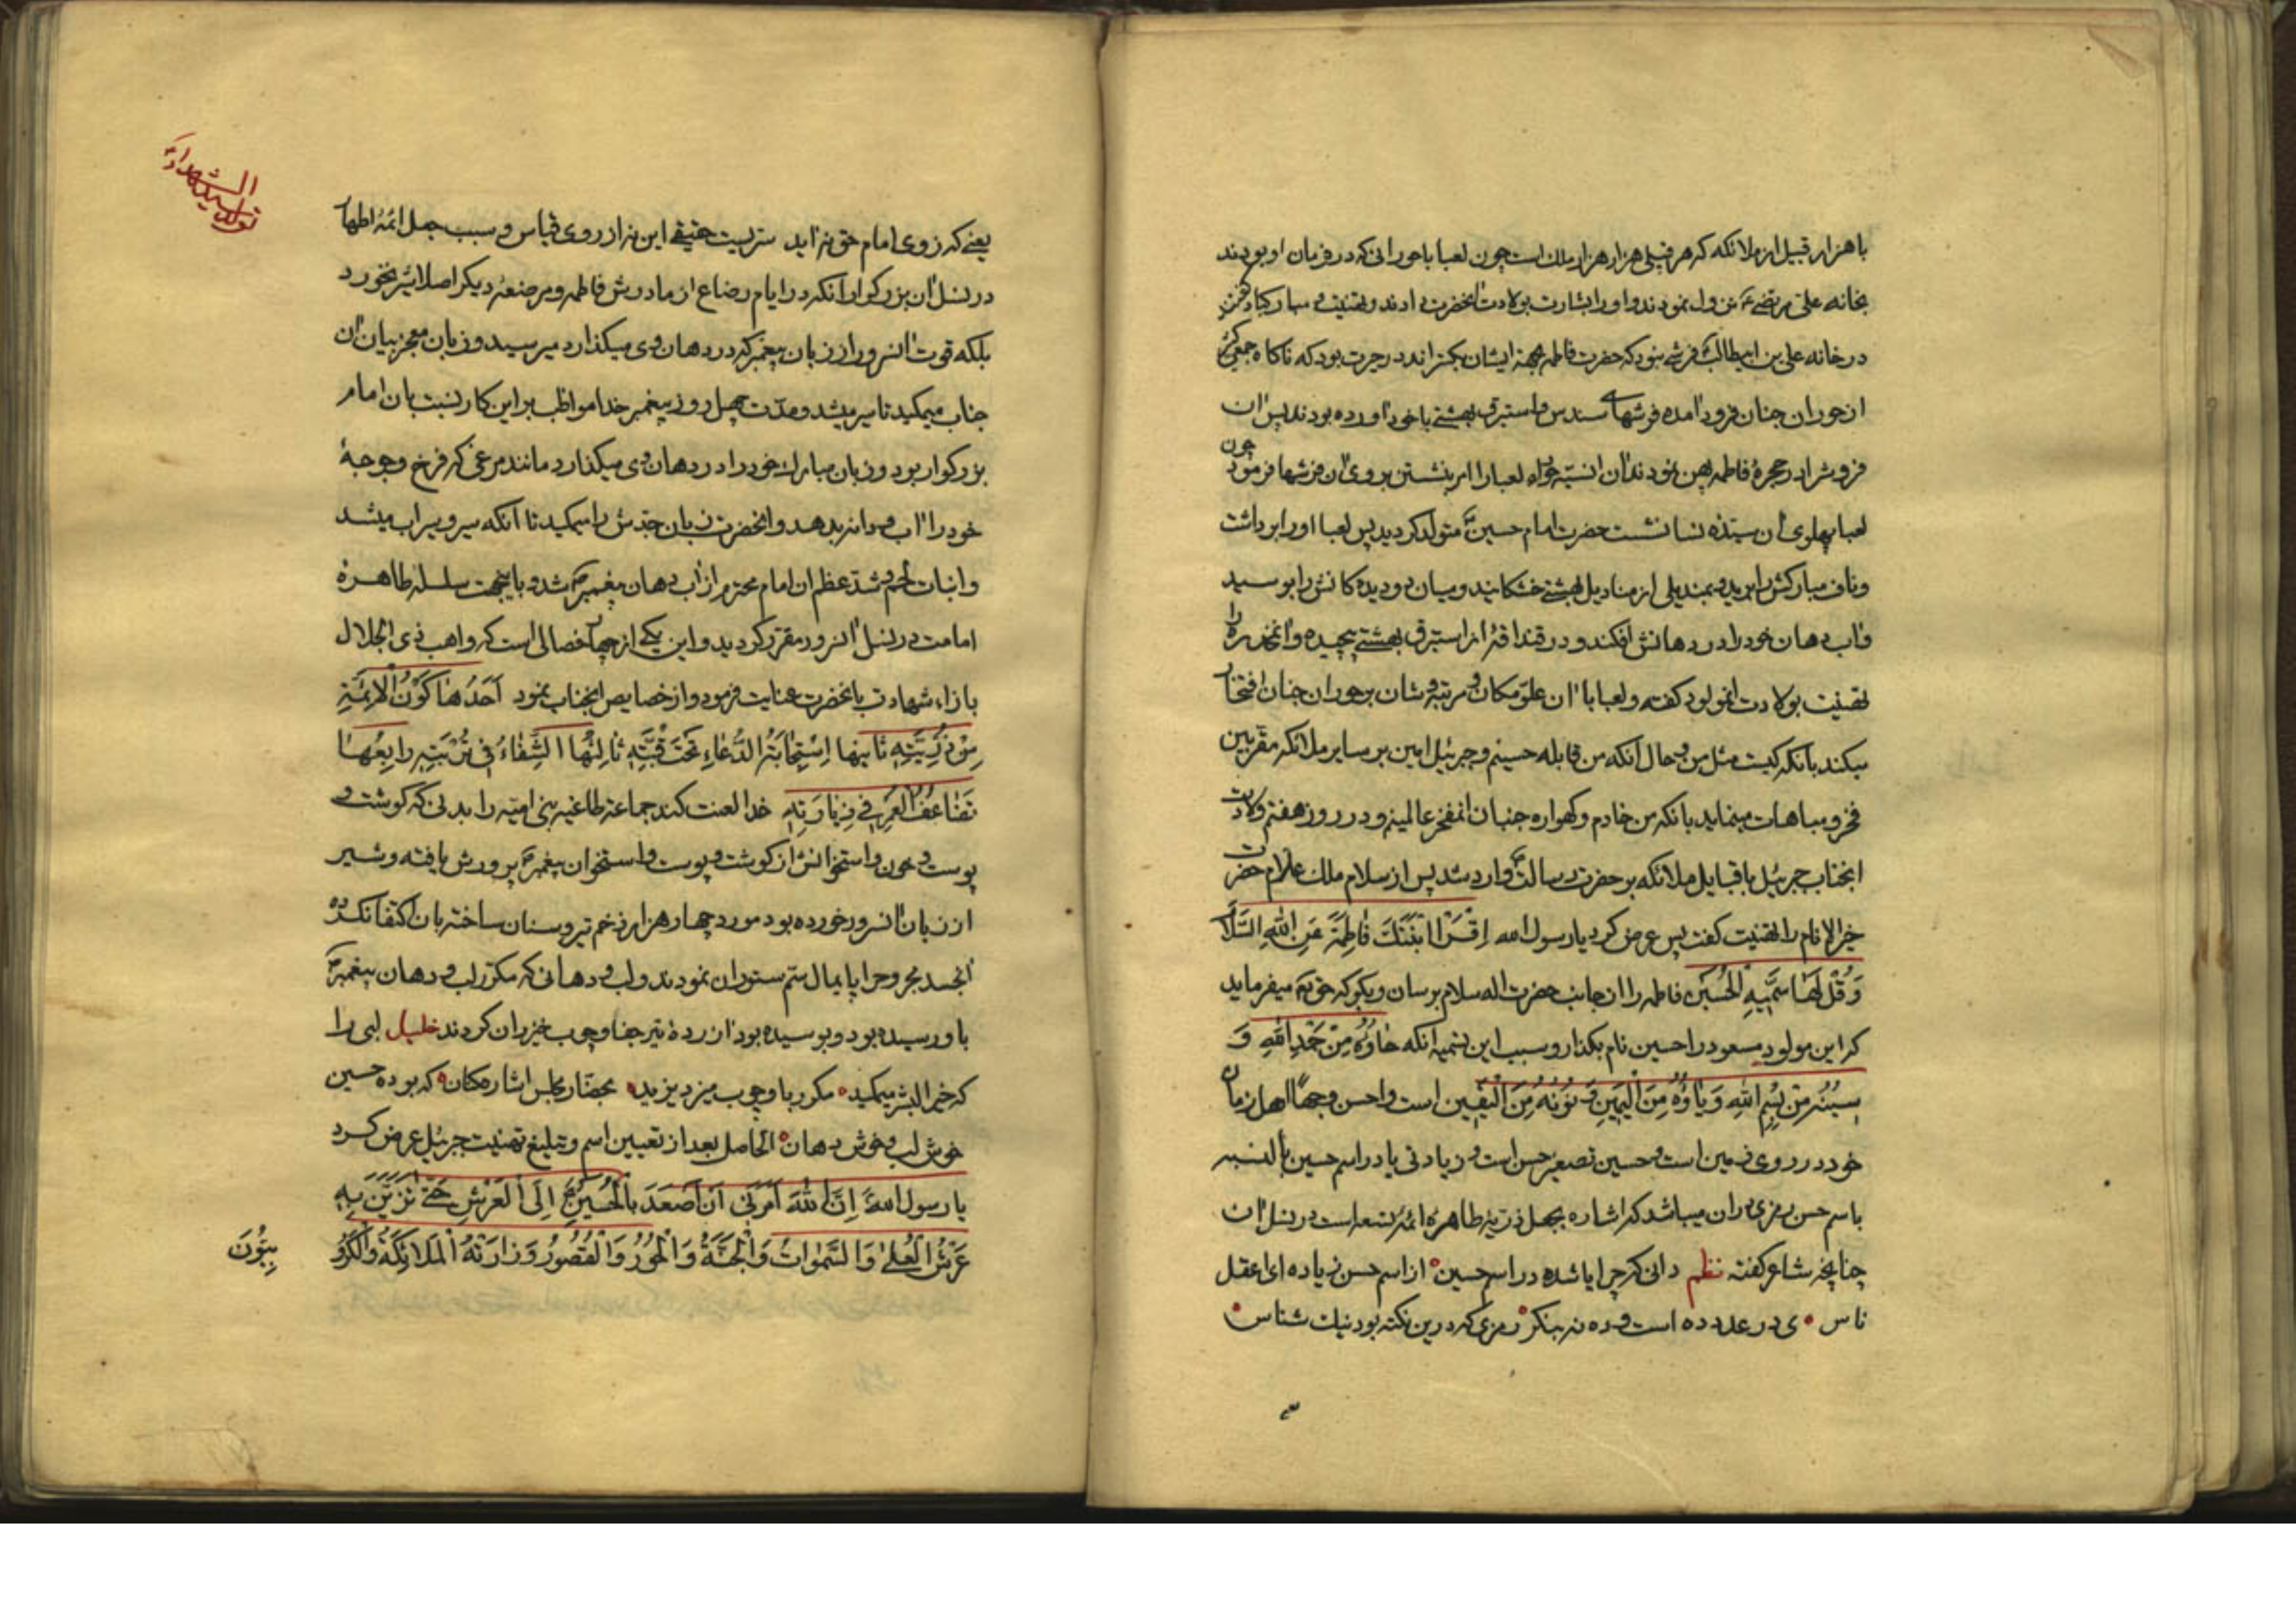 با هزار قبیل از ملائکه که هر قبیلی هزار هزار ملک است چون لعبا با حورانی که در فرمان او بودند
بخانه علی مرتضی ع نزول نمودند و او را بشارت بولادت آنحضرت دادند و تهنیت و مبارکباد
در خانه علی بن ابیطالب فرشی نبود که حضرت فاطمه بجهة ایشان بکستراند در حیرت بود که ناکاه جمعی
از حوران جنان فرود آمده فرشهای سندس و استبرق بهشتی با خود آورده بودند پس آن
فروش را در حجرهٔ فاطمه پهن نمودند آن انسیّه حوراء لعبا را امر بنشستن بروی آن فرشها فرمود چون
لعبا بپهلوی آن سیّدهٔ نسا نشست حضرت امام حسین ع متولد کردید پس لعبا او را برداشت
و ناف مبارکش را برید و بمندیلی از منادیل بهشتی خشکانید و میان دو دیده کانش را بوسید
و آب دهان خود را در دهانش افکند و در قنداقهٔ از استبرق بهشتی پیچیده و آنخدره را
تهنیت بولادت آنمولود کفته و لعبا با آن علوّ مکان و مرتبه و شان بر حوران جنان افتخار
میکند بآنکه کیست مثل من و حال آنکه من قابله حسینم و جبرئیل امین بر سایر ملائکه مقرّبین
فخر و مباهات مینماید بانکه من خادم و کهواره جنبان آنمفخر عالمینم و در روز هفتم ولادت
آنجناب جبرئیل با قبایل ملائکه بر حضرت رسالت ص وارد شد پس از سلام ملک علام حضرت
خیر الانام را تهنیت کفت پس عرض کرد یا رسول الله اِقْرَأ ابْنَتَكَ فَاطِمَةَ عَنِ اللّٰهِ السَّلَامَ
وَ قُلْ لَهَا سَمِّیهِ الْحُسَیْنَ فاطمه را از جانب حضرت اله سلام برسان و بکو که حق تع میفرماید
که این مولود مسعود را حسین نام بکذار و سبب این تسمیه آنکه حَاؤُهُ مِنْ حَمْدِ اللّٰهِ وَ
سِینُهُ مِنْ بِسْمِ اللّٰهِ وَ یَاؤُهُ مِنَ الْیَمِینِ وَ نُونُهُ مِنَ الْیَقِینِ است و احسن وجهًا اهل زمان
خود در روی زمین است و حسین تصغیر حسن است و زیادتی یا در اسم حسین بالنسبه
باسم حسن رمزی در آن میباشد که اشاره بجعل ذریّهٔ طاهرهٔ ائمهٔ تسعه است در نسل آن
چنانچه شاعر کفته نظم دانی که چرا یا شده در اسم حسین از اسم حسن زیاده ای اعقل
ناس ی در عدد ده است و ده نه بنکر رمزی که درین نکته بود نیک شناس
تولد سید الشهداء ع
یعنی که ز وی امام حق نه آید سریست حقیقی این نه از روی قیاس و سبب جعل ائمّهٔ اطهار
در نسل آن بزرکوار آنکه در ایام رضاع از مادرش فاطمه و مرضعهٔ دیکر اصلا شیر نخورد
بلکه قوت آنسرور از زبان پیغمبر که در دهان وی میکذارد میرسید و زبان معجز بیان آن
جناب میمکید تا سیر میشد و مدّت چهل روز پیغمبر خدا مواظب بر این کار نسبت بان امام
بزرکوار بود و زبان مبارک خود را در دهان وی میکذارد مانند مرغی که فرخ و جوجهٔ
خود را آب و دانه بدهد و انحضرت زبان جدّش را میمکید تا آنکه سیر و سیراب میشد
و انبات لحم و شدّ عظم ان امام محترم از آب دهان پیغمبر ص شد و باینجهت سلسلهٔ طاهرهٔ
امامت در نسل آنسرور مقرّر کردید و این یکی از چهار خصالی است که واهب ذی الجلال
بازاء شهادت بانحضرت عنایت فرمود و از خصایص انجناب نمود اَحَدُهَا كَوْنُ الْاَئِمَّةِ
مِنْ ذُرِّیَّتِهِ ثانیها اِسْتِجَابَةُ الدُّعَاءِ تَحْتَ قُبَّتِهِ ثَالِثُهَا الشِّفَاءُ فِی تُرْبَتِهِ رابِعُهَا
تَضَاعُفُ الْعُمْرِ فِی زِیَارَتِهِ خدا لعنت کند جماعت طاغیه بنی امیّه را بدنی که کوشت و
پوست و خون و استخوانش از کوشت و پوست و استخوان پیغمبر ص پرورش یافته و شیر
از زبان آنسرور خورده بود مورد چهار هزار زخم تیر و سنان ساخته بان اکتفا نکرده
آنجسد مجروح را پایمال سمّ ستوران نمودند و لب و دهانی که مکرّر لب و دهان پیغمبر ص
باو رسیده بود و بوسیده بود آزردهٔ تیر جفا و چوب خیزران کردند خلیل لبی را
که خیر البشر میمکید مکرر با و چوب میزد یزید بحضّار مجلس اشاره کنان که بوده حسین
خوش لب و خوش دهان الحاصل بعد از تعیین اسم و تبلیغ تهنیت جبرئیل عرض کرد
یا رسول الله اِنَّ اللّٰهَ اَمَرَنِی اَنْ اَصْعَدَ بِالْحُسَیْنِ ع اِلَی الْعَرْشِ حَتّٰی تَزَیَّنَ بِهِ
عَرْشُ الْعُلٰی وَ السَّمٰوَاتُ وَ الْجَنَّةُ وَ الْحُورُ وَ الْقُصُورُ وَ زَارَتْهُ الْمَلَائِکَةُ وَ الْکَرُّو
بِیُّونَ